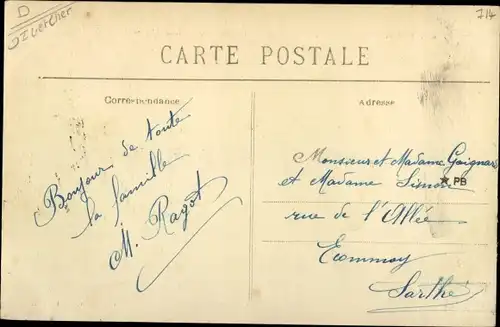 D
Loir et Cher
CARTE POSTALE
Correspondance
Adresse
Bonjour de toute
la famille
M. Ragot
Monsieur et Madame Goignar
et Madame Simon
PB
rue de l'Allée
Ecommoy
Sarthe